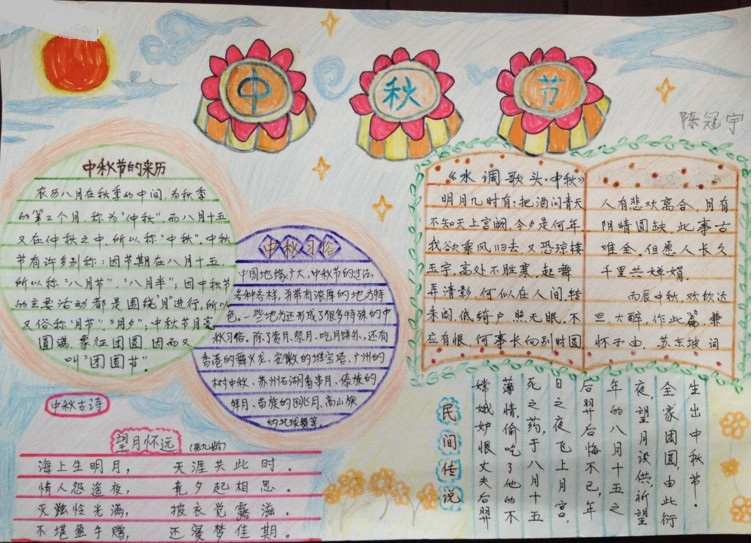 中秋节
陈冠宇
中秋节的来历
农历八月在秋季的中间,为秋季
的第二个月,称为"仲秋",而八月十五
又在仲秋之中,所以称"中秋"。中秋
节有许多别称:因节期在八月十五
所以称"八月节"、"八月半";因中秋节
的主要活动都是围绕"月"进行,所以
又俗称"月节"、"月夕";中秋节月亮
圆满,象征团圆,因而又
叫"团圆节"。
中秋习俗
中国地缘广大,中秋节的过法,
各种各样,并带有浓厚的地方特
色。一些地方还形成了很多特殊的中
秋习俗。除了赏月、祭月、吃月饼外,还有
香港的舞火龙、安徽的堆宝塔、广州的
树中秋、苏州石湖看串月、傣族的
拜月、苗族的跳月、高山族
《水调歌头·中秋》
明月几时有,把酒问青天
不知天上宫阙,今夕是何年
我欲乘风归去,又恐琼楼
玉宇,高处不胜寒,起舞
弄清影,何似在人间,转
朱阁,低绮户,照无眠,不
应有恨,何事长向别时圆
人有悲欢离合,月有
阴晴圆缺,此事古
难全,但愿人长久
千里共婵娟。
丙辰中秋,欢饮达
旦,大醉,作此篇,兼
怀子由。苏东坡词
中秋古诗
望月怀远
海上生明月,天涯共此时。
情人怨遥夜,竟夕起相思。
灭烛怜光满,披衣觉露滋。
不堪盈手赠,还寝梦佳期。
民间传说
嫦娥妒恨丈夫后羿
薄情偷吃了他的不
死之药,于八月十五
日之夜飞上月宫,
后羿后悔不已,年
年的八月十五之
夜,望月设供,祈望
全家团圆,由此衍
生出中秋节。